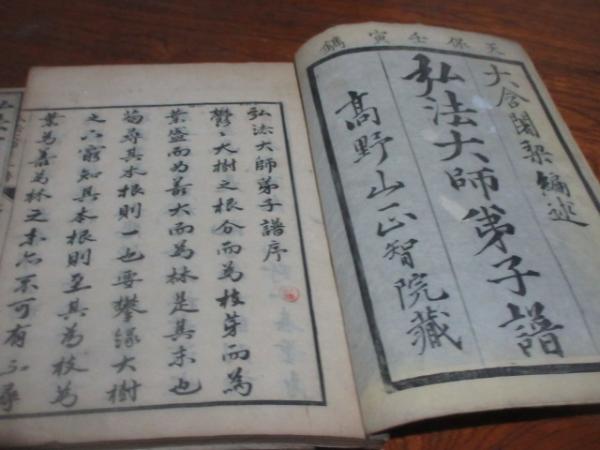 天保壬寅鐫
大含闍梨編述
弘法大師弟子譜
高野山正智院蔵
弘法大師弟子譜序
鬱々大樹之根分而為枝芽而為
葉盛而為喬大而為林是其末也
苟尋其本根則一也要攀缘大樹
之六窮知其本根則至其為枝為
葉為喬為林之末亦不可有